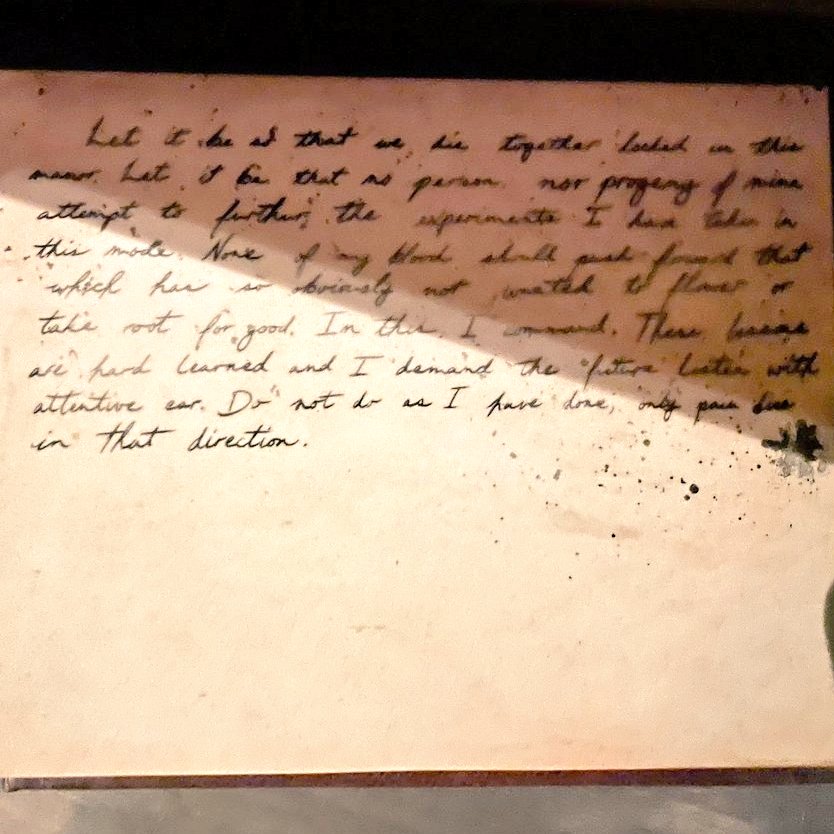 Let it be so that we die together locked in this
manor. Let it be that no person, nor progeny of mine
attempt to further, the experiments I have taken in
this mode. None of my blood shall push forward that
which has so obviously not wanted to flower or
take root for good. In this, I command. These lessons
are hard learned and I demand the future listen with
attentive ear. Do not do as I have done, only pain lies
in that direction.